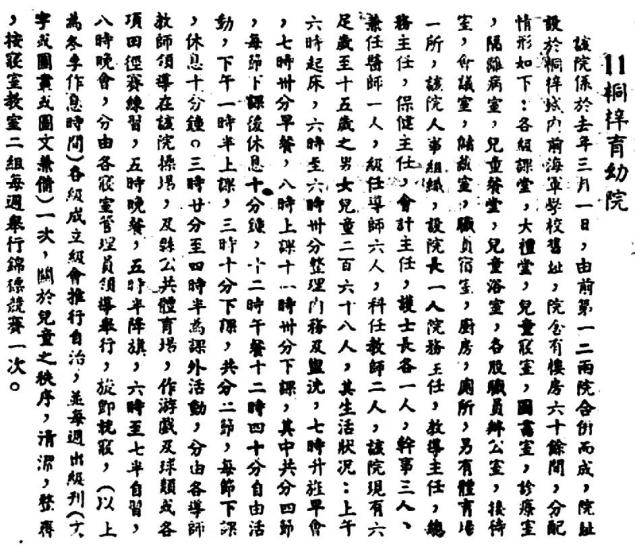 11桐梓育幼院
該院係於去年三月一日,由前第一二兩院合併而成,院址
設於桐梓城內前海軍學校舊址,院舍有樓房六十餘間,分配
情形如下:各級課堂,大禮堂,兒童寢室,圖書室,診療室
,隔離病室,兒童餐堂,兒童浴室,各股職員辦公室,接待
室,會議室,儲藏室,職員宿室,廚房,廁所,另有體育場
一所,該院人事組織,設院長一人院務主任,教導主任,總
務主任,保健主任,會計主任,護士長各一人,幹事三人、
兼任醫師一人,級任導師六人,科任教師二人,該院現有六
足歲至十五歲之男女兒童二百六十八人,其生活狀況:上午
六時起床,六時至六時卅分整理內務及盥洗,七時升旌早會
,七時卅分早餐,八時上課十一時卅分下課,其中共分四節
,每節下課後休息十分鐘,十二時午餐十二時四十分自由活
動,下午一時半上課,三時十分下課,共分二節,每節下課
,休息十分鐘。三時廿分至四時半為課外活動,分由各導師
教師領導在該院操場,及縣公共體育場,作游戲及球類或各
項田徑賽練習,五時晚餐,五時半降旗,六時至七半自習,
八時晚會,分由各寢室管理員領導舉行,旋即就寢,(以上
為冬季作息時間)各級成立級會推行自治,並每週出級刊(文
字或圖畫或圖文兼備)一次,關於兒童之秩序,清潔,整齊
,按寢室教室二組每週舉行錦標競賽一次。